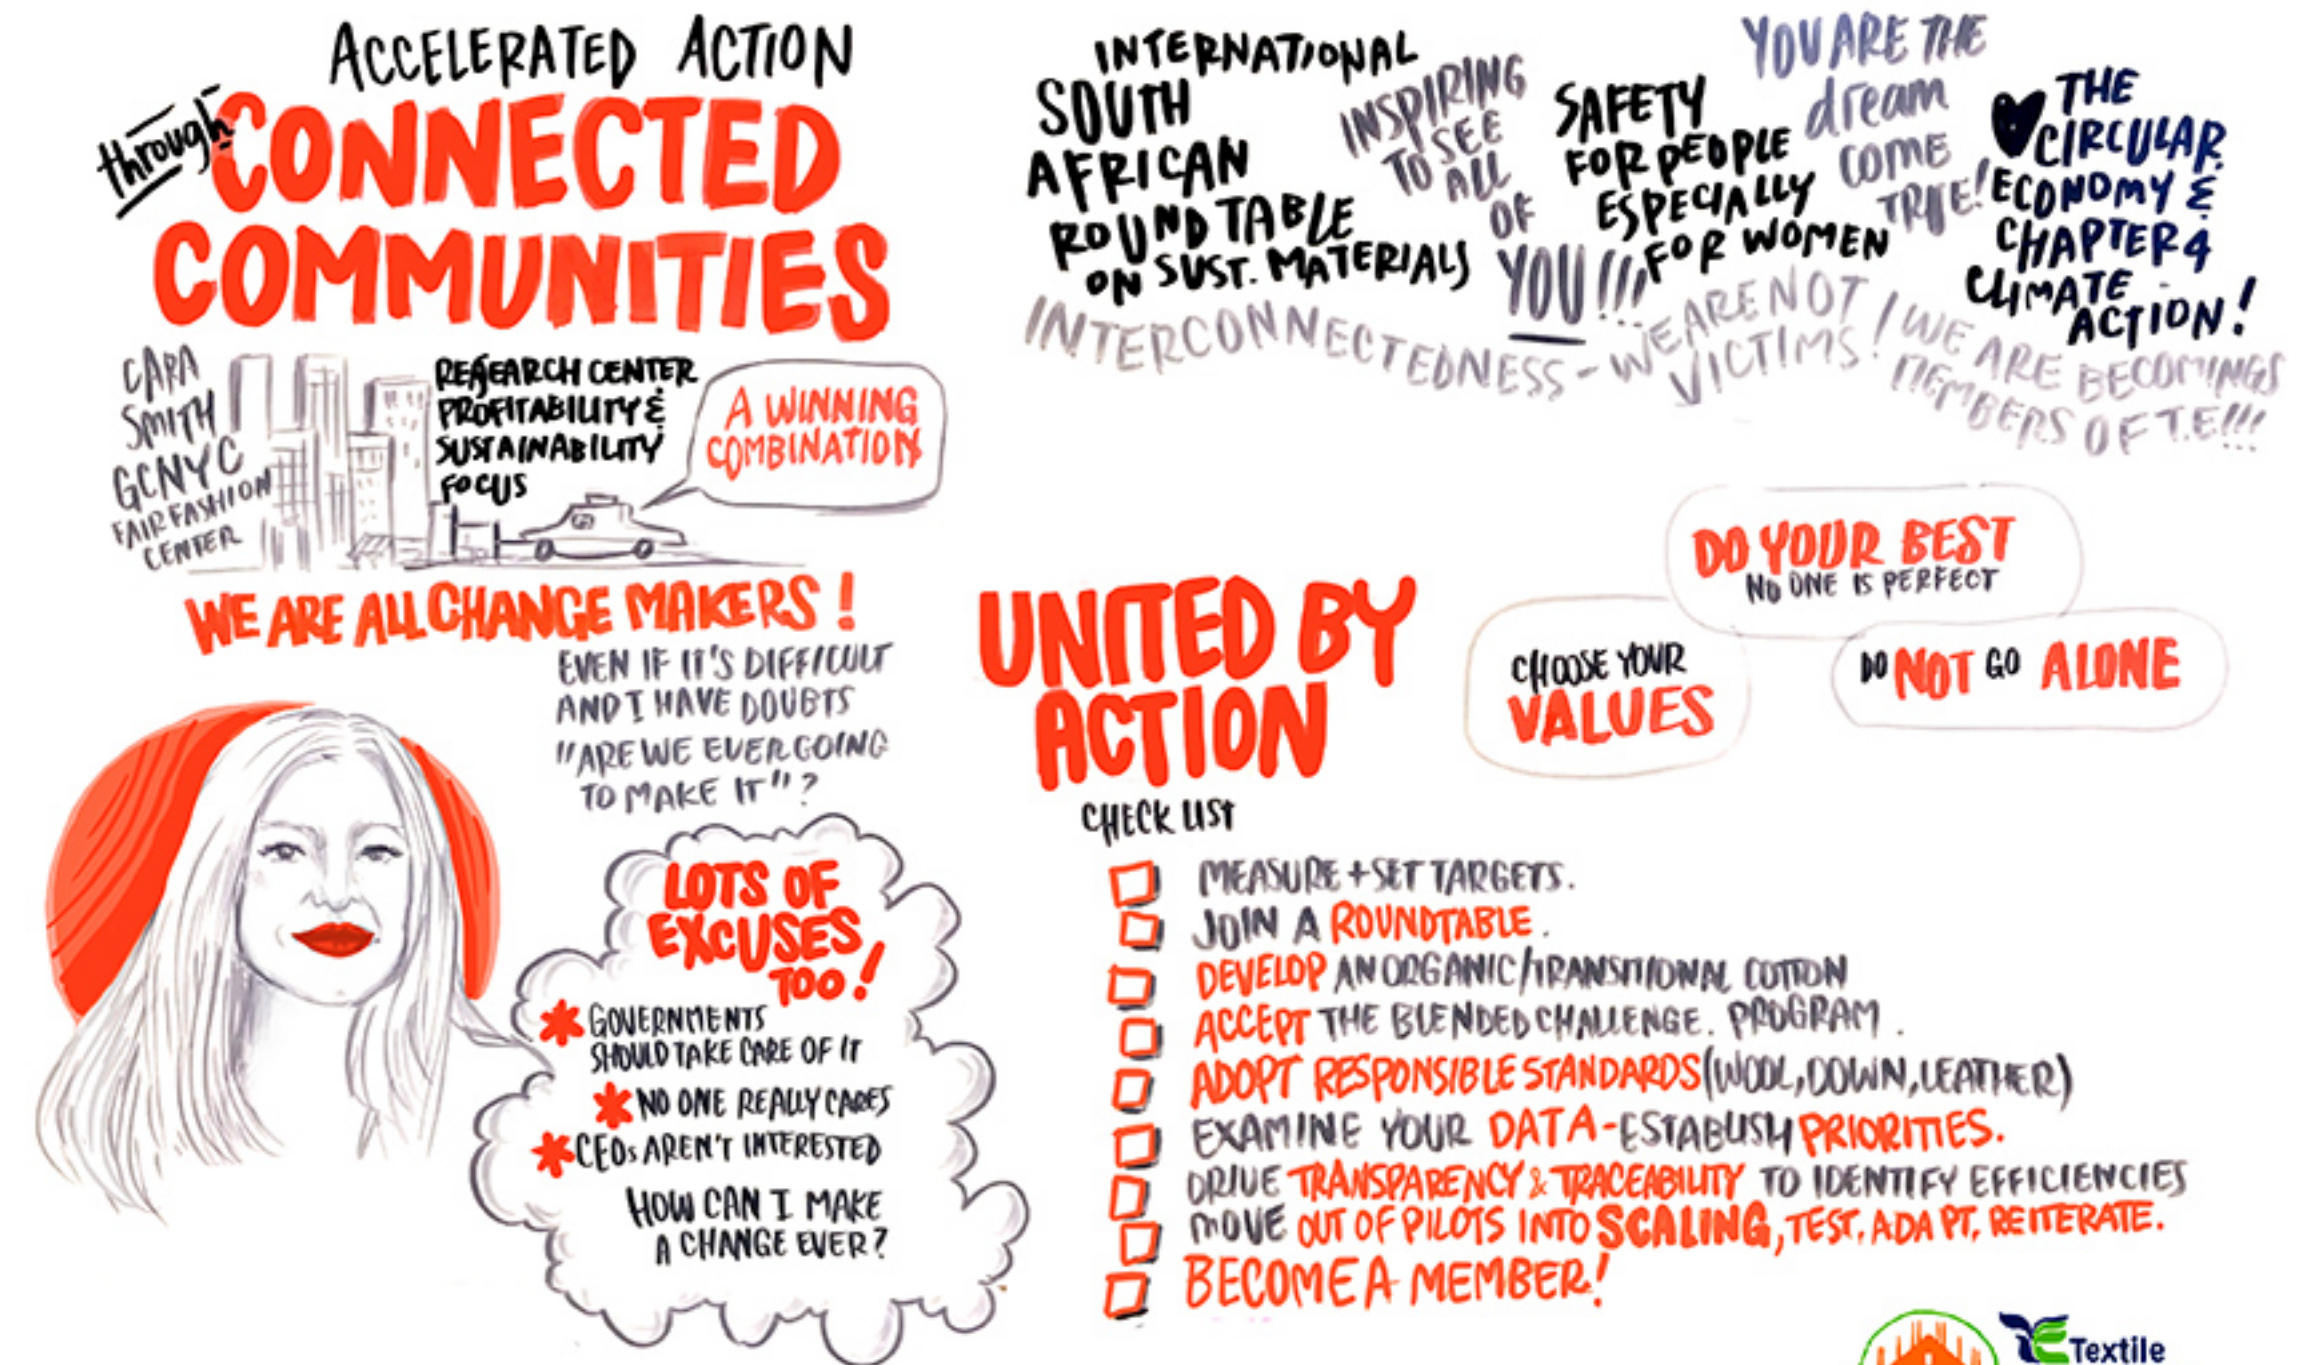 ACCELERATED ACTION
through
CONNECTED
COMMUNITIES
CARA
SMITH
GCNYC
FAIR FASHION
CENTER
RESEARCH CENTER
PROFITABILITY &
SUSTAINABILITY
FOCUS
A WINNING
COMBINATION
WE ARE ALL CHANGE MAKERS!
EVEN IF IT'S DIFFICULT
AND I HAVE DOUBTS
"ARE WE EVER GOING
TO MAKE IT"?
LOTS OF
EXCUSES
TOO!
* GOVERNMENTS
SHOULD TAKE CARE OF IT
* NO ONE REALLY CARES
* CEOs AREN'T INTERESTED
HOW CAN I MAKE
A CHANGE EVER?
INTERNATIONAL
SOUTH
AFRICAN
ROUND TABLE
ON SUST. MATERIALS
INSPIRING
TO SEE
ALL
OF
YOU!!!
SAFETY
FOR PEOPLE
ESPECIALLY
FOR WOMEN
YOU ARE THE
dream
COME
TRUE!
THE
CIRCULAR
ECONOMY &
CHAPTER 4
CLIMATE
ACTION!
INTERCONNECTEDNESS - WE ARE NOT
VICTIMS!
WE ARE BECOMINGS
MEMBERS OF T.E!!!
DO YOUR BEST
NO ONE IS PERFECT
CHOOSE YOUR
VALUES
DO NOT GO ALONE
UNITED BY
ACTION
CHECK LIST
MEASURE + SET TARGETS.
JOIN A ROUNDTABLE.
DEVELOP AN ORGANIC/TRANSITIONAL COTTON
ACCEPT THE BLENDED CHALLENGE. PROGRAM.
ADOPT RESPONSIBLE STANDARDS (WOOL, DOWN, LEATHER)
EXAMINE YOUR DATA - ESTABLISH PRIORITIES.
DRIVE TRANSPARENCY & TRACEABILITY TO IDENTIFY EFFICIENCIES
MOVE OUT OF PILOTS INTO SCALING, TEST, ADAPT, REITERATE.
BECOME A MEMBER!
Textile